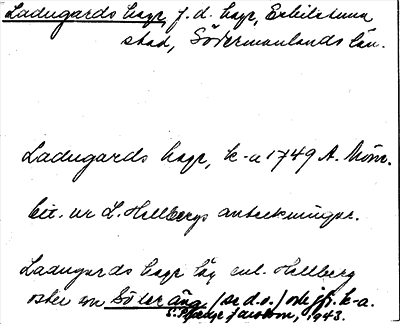 Ladugards hage, f. d. hage, Eskilstuna
stad, Södermanlands län.
Ladugards hage, k-a 1749 A. Möm.
cit. ur L. Hellbergs anteckningar.
Ladugards hage låg enl. Hellberg
öster om Söteräng (se d. o.) och jfr. k-a.
1943.